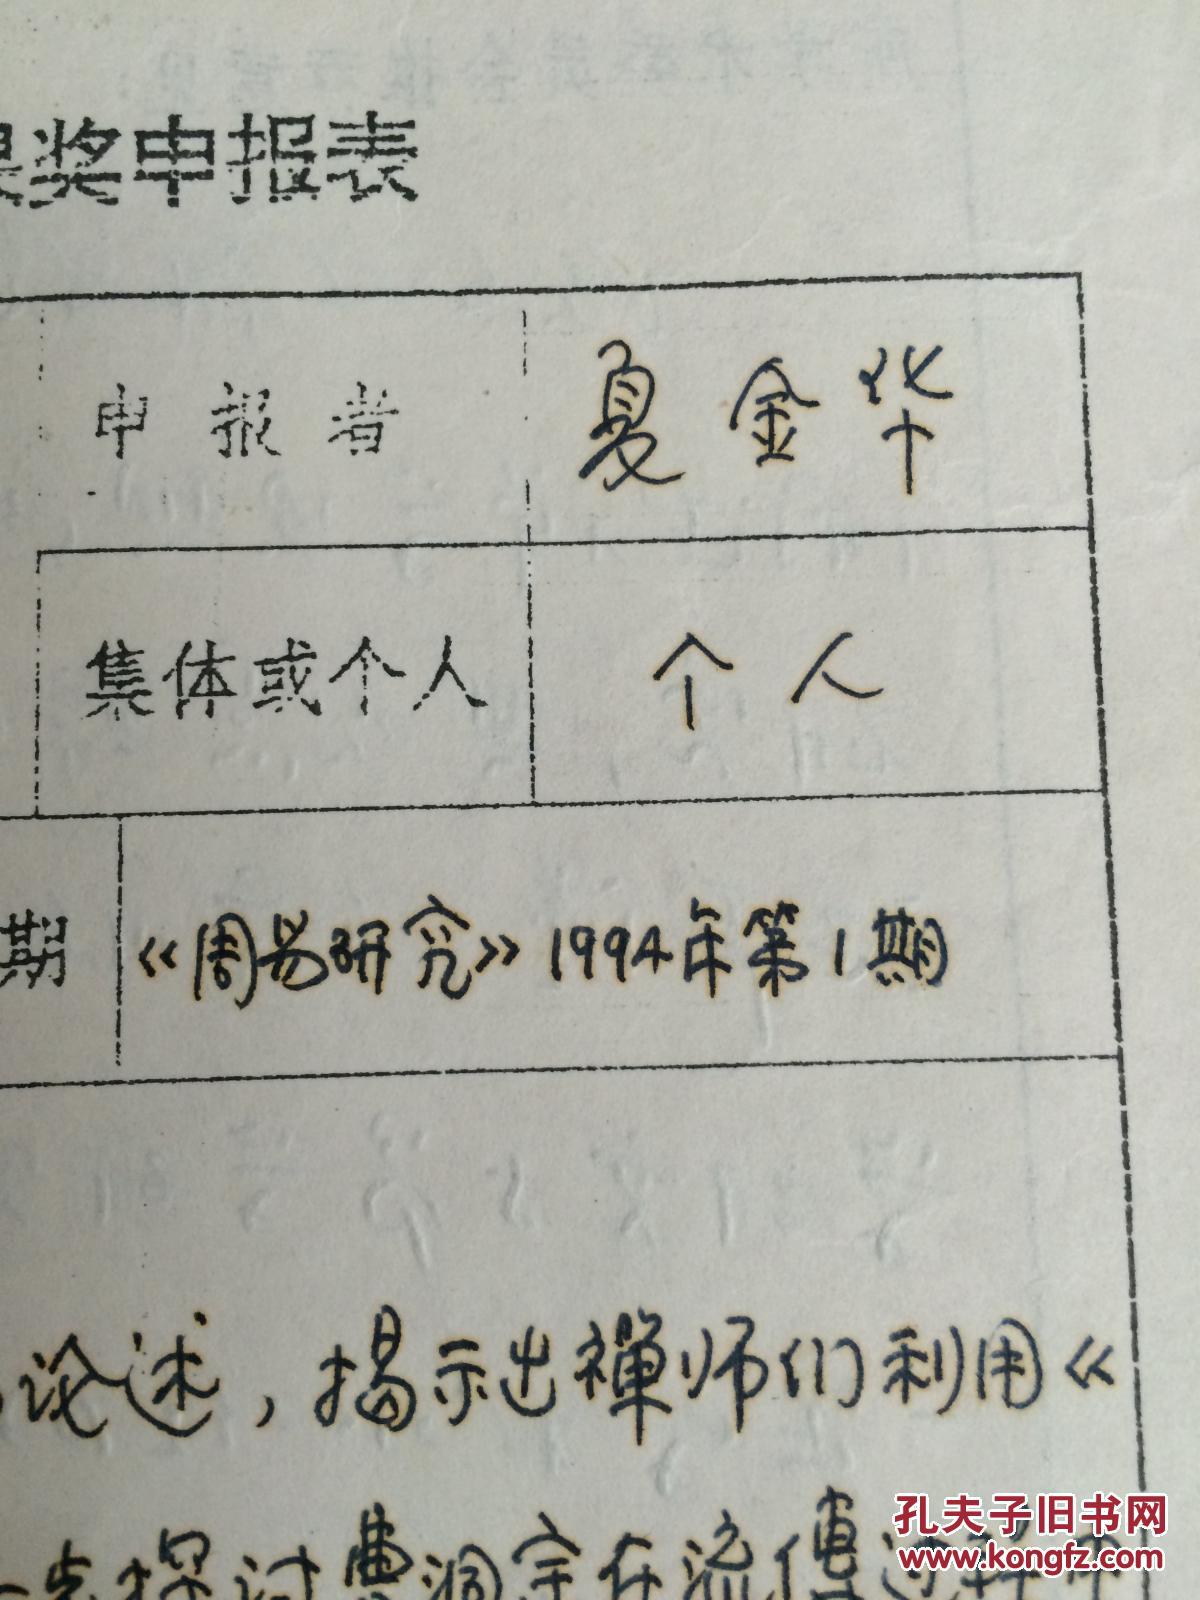 果奖申报表
申报者 夏金华
集体或个人 个人
期 《周易研究》1994年第1期
论述，揭示出禅师们利用《
探讨曹洞宗在流傳过程中
孔夫子旧书网
www.kongfz.com